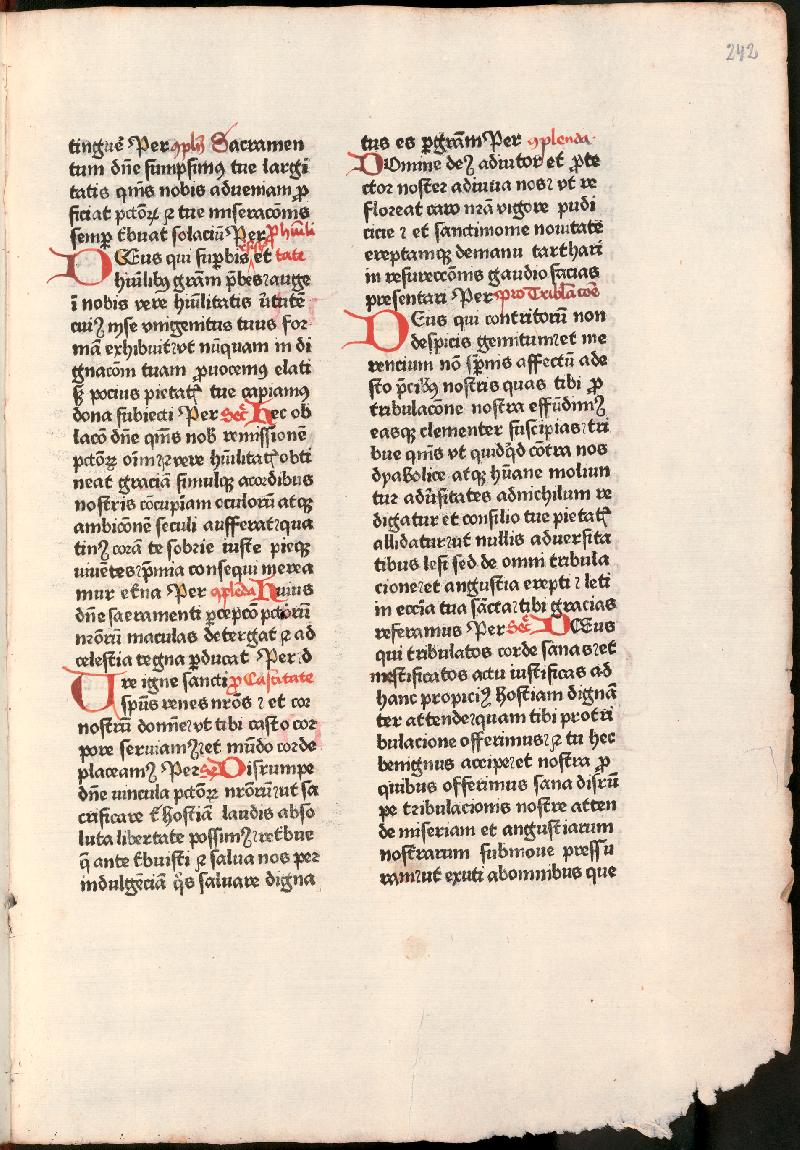 242
tinguē Per ꝯplē Sacramen
tum dn̄e sumpsimꝰ tue largi
tatis qm̄s nobis adueniam ꝓ
ficiat pctōꝝ ⁊ tue miseracōnis
semꝑ t͛buat solaciū Per ꝓ hūili
DEus qui suꝑbis resistis et tate
hūilibꝰ grām p̄bes auge
ī nobis vere hūilitatis v̓tutē
cuiꝰ in se vnigenitus tuus for
mā exhibuit vt nūquam in di
gnacōm tuam ꝓuocemꝰ elati
sꝫ pocius pietatꝭ tue capiamꝰ
dona subiecti Per Secͬ Hec ob
lacō dn̄e qm̄s nob̄ remissionē
pctōꝝ oīm ⁊ vere hūilitatꝭ obti
neat graciā simulqꝫ a cordibus
nostris cōcupīam oculorū atqꝫ
ambicōnē seculi aufferat qua
tinꝰ corā te sobrie iuste pieqꝫ
viuētes p̄mia consequi merea
mur et͛na Per ꝯplēda Huius
dn̄e sacramenti ꝑcepcō pctōrū
nrōrū maculas detergat ⁊ ad
celestia regna ꝑducat Per d
Ure igne sancti ꝓ Castitate
spūs renes nrōs ⁊ et cor
nostrū domīe vt tibi casto cor
pore seruiamꝰ et mūdo corde
placeamꝰ Per Sē Disrumpe
dn̄e vincula pctōꝝ nrōrū ut sa
crificare t͛ hostiā laudis abso
luta libertate possimꝰ ret͛bue
q̄ ante t͛buisti ⁊ salua nos per
indulgēciā qͦs saluare digna
tus es ꝑ grām Per ꝯplenda
DOmine deꝰ adiutor et ꝓte
ctor noster adiuua nos vt re
floreat caro nrā vigore pudi
cicie ⁊ et sanctimome nouitate
ereptamqꝫ demanu tarthari
in resureccōnis gaudio facias
presentari Per pro Tribl̄acōe
DEus qui contritorū non
despicis gemitum et me
rencium nō sp̄nis affectū ade
sto p̄cibꝰ nostris quas tibi ꝓ
tribulacōne nostra effūdimꝰ
easqꝫ clementer suscipias tri
bue qm̄s vt quidqd cōtra nos
dyabolice atqꝫ hūane moliun
tur adu̓sitates adnichilum re
digatur et consilio tue pietatꝭ
allidatur ut nullis aduersita
tibus lesi sed de omni tribula
cione et angustia erepti ⁊ leti
in ecc̄ia tua sācta tibi gracias
referamus Per Secͬ DEus
qui tribulatos corde sanas et
mestificatos actu iustificas ad
hanc propiciꝰ hostiam dignā
ter attende quam tibi pro tri
bulacione offerimus ⁊ tu hec
benignus accipe et nostra ꝓ
quibus offerimus sana disrū
pe tribulacionis nostre atten
de miseriam et angustiarum
nostrarum submoue pressu
ram ut exuti abomnibus que